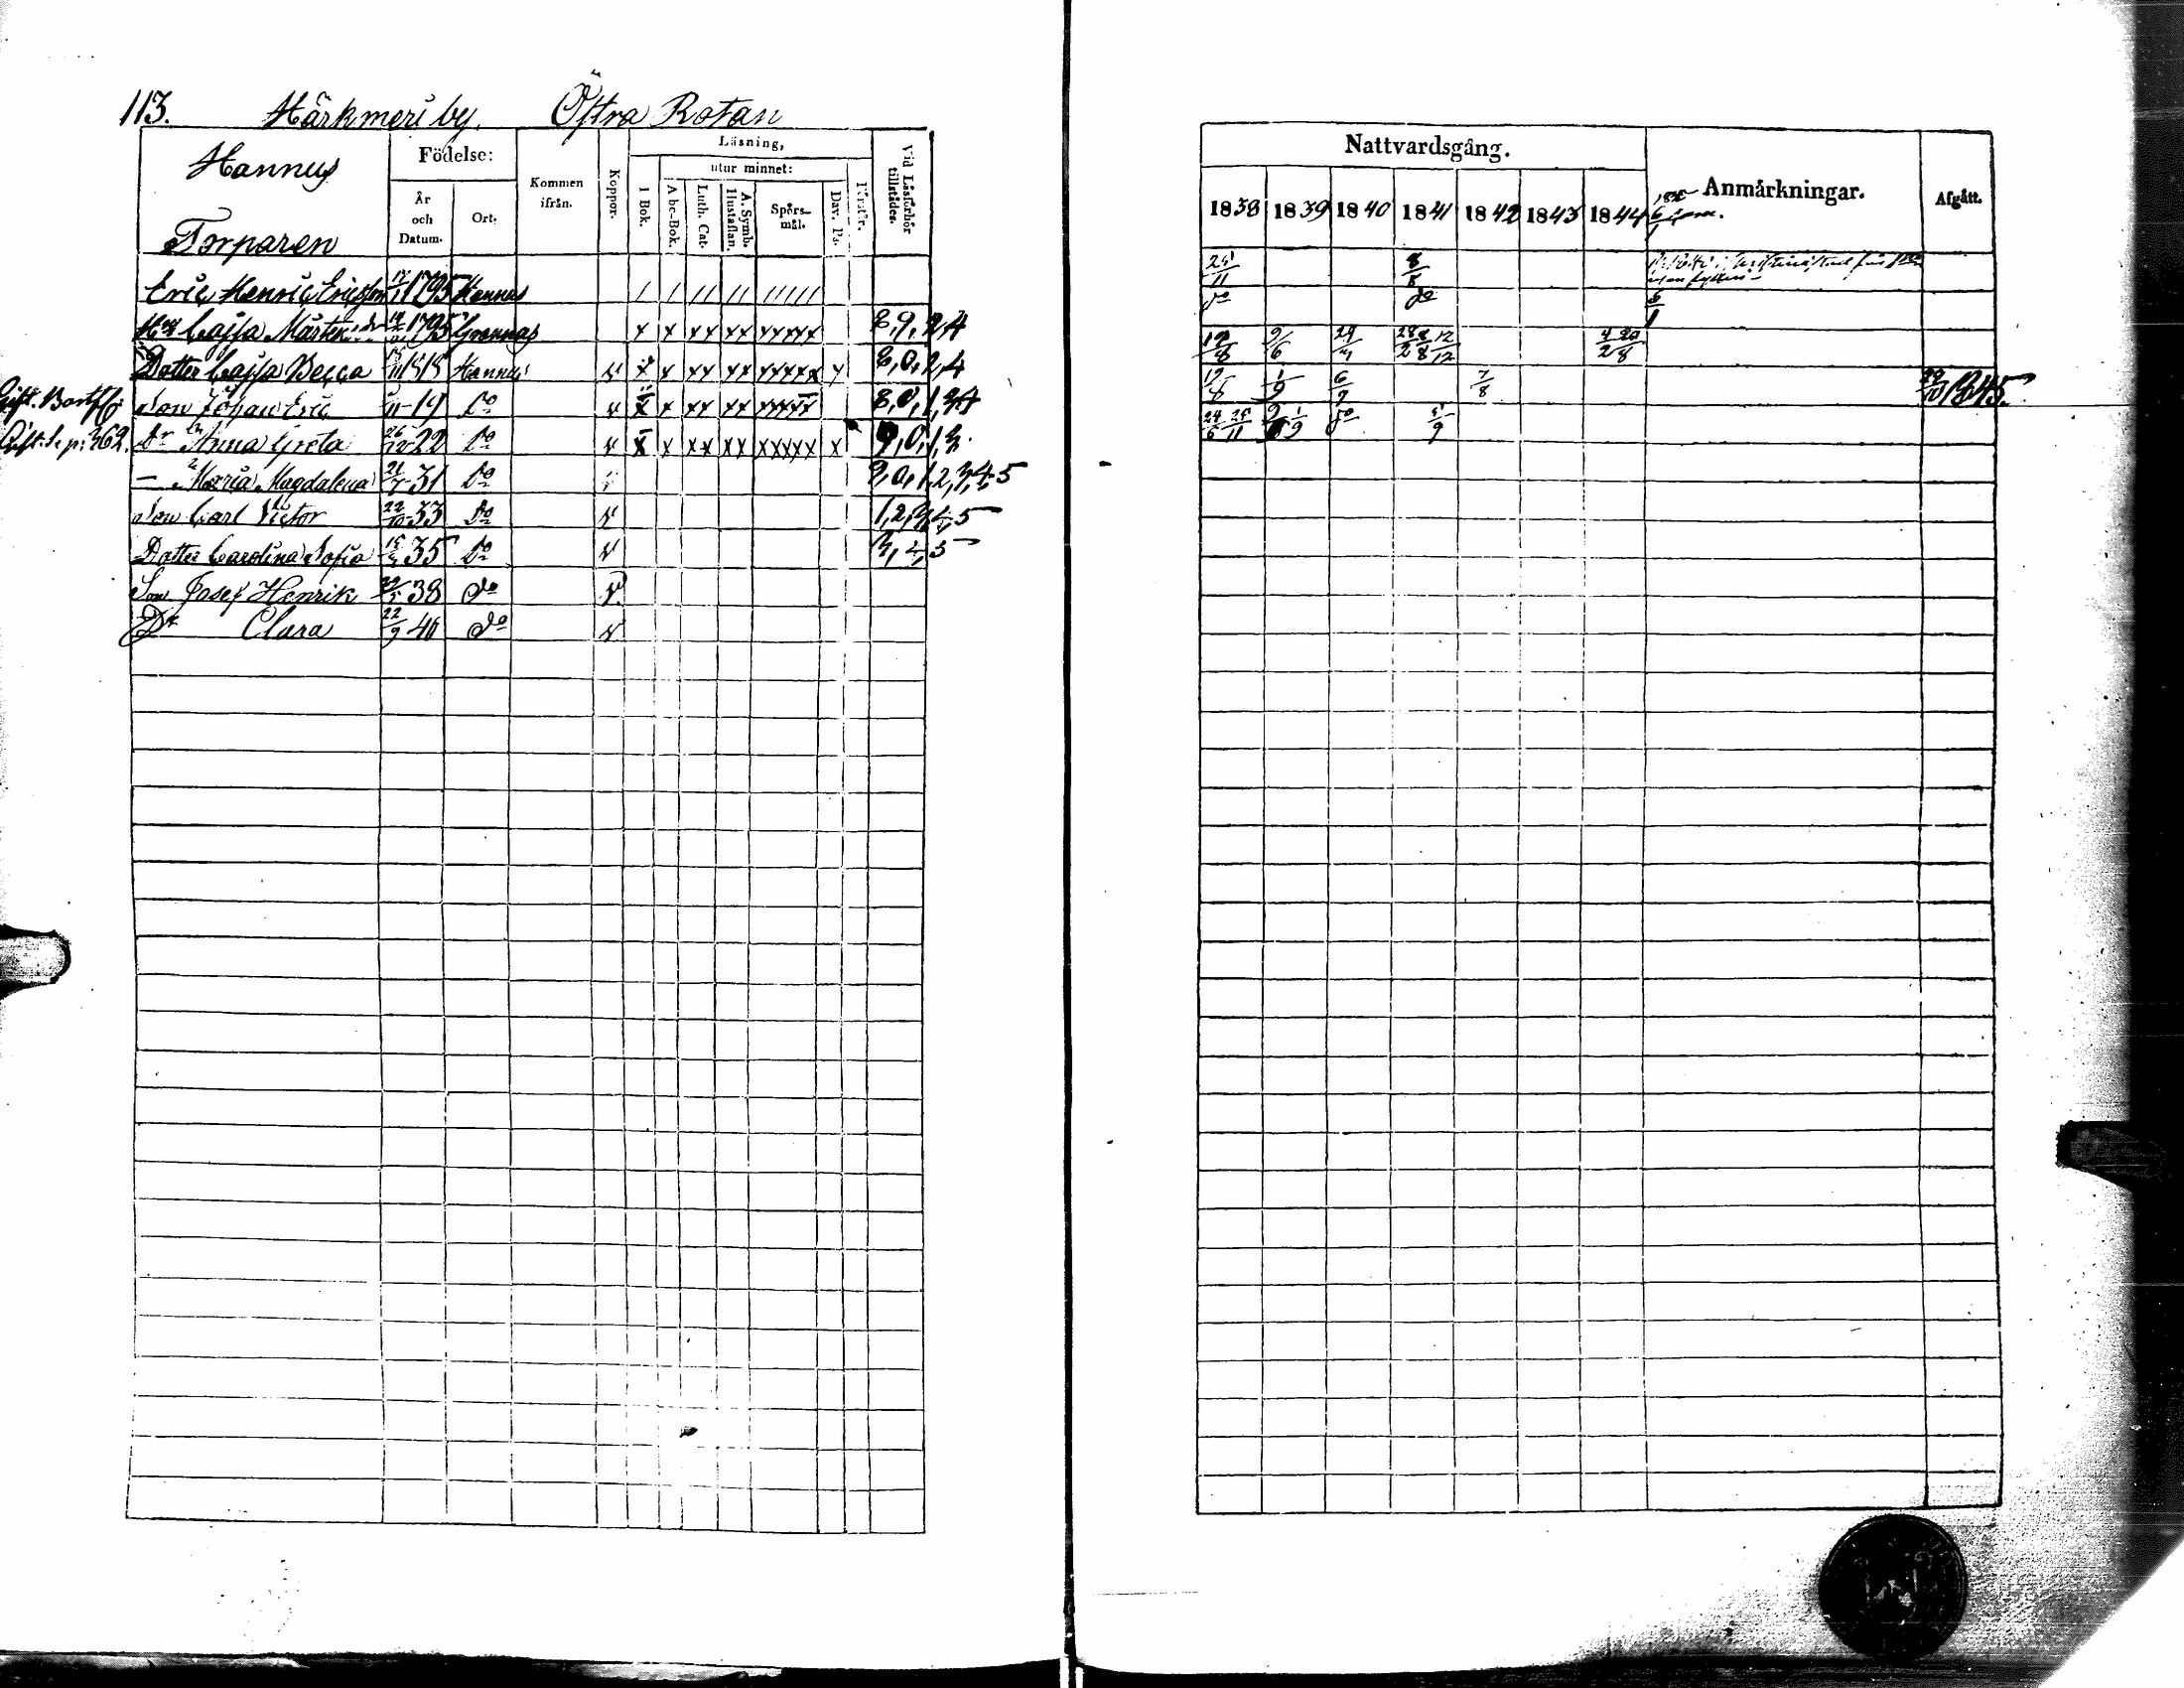 113. Härkmeri by. Östra Rotan
Hannus
Torparen
Födelse:
År och Datum.
Ort.
Kommen ifrån.
Koppor.
Läsning,
I Bok.
utur minnet:
A bc-Bok.
Luth. Cat.
A. Symb. Hustaflan.
Spörsmål.
Dav. Ps.
Förstår.
Vid Läsförhör tillstädes.
Eric Henric Ericsson 17/11 1795 Hannus / / // // /////
Hu Cajsa Mårtensdr 1795 x x xx xx xxxxx 8,9,2,4
Dotter Cajsa Becca 1818 Hannus v x x xx xx xxxxx x 8,0,2,4
Gift. Son Johan Eric 19 Do v x x xx xx xxxxx 8,0,1,3,4
Gift. S. p. 362. Dr Anna Greta 26/12 22 Do v x x xx xx xxxxx x 9,0,1,3.
— Maria Magdalena 21/7 31 Do v 9,0,1,2,3,4,5
Son Carl Victor 22/10 33 Do v 1,2,3,4,5
Dotter Carolina Sofia 35 Do v 3,4,5
Son Josef Henrik 38 do v
Dr Clara 22/9 40 do v
Nattvardsgång.
1838 1839 1840 1841 1842 1843 1844
Anmärkningar.
Afgått.
25/11 8/8
do do
19/8 9/6 28/2 8/8 12/12 4/2 20/8
19/8 1/9 6/9 7/8 1845.
24/6 25/11 1/9 do 5/9